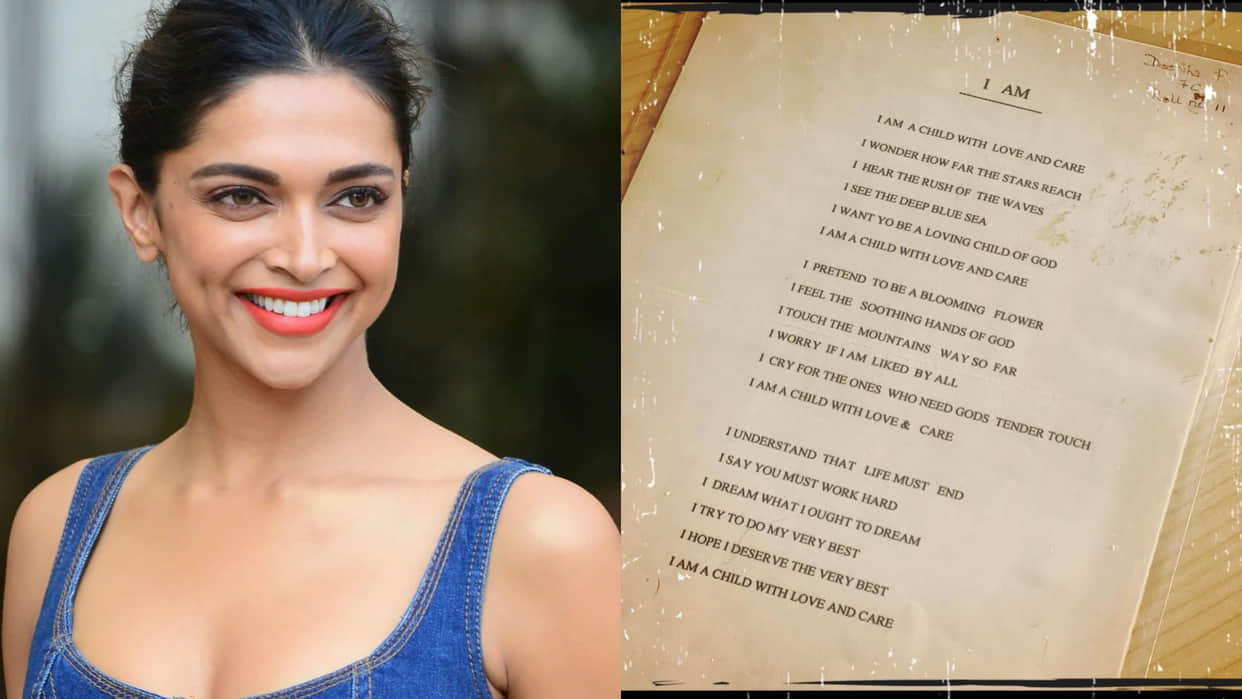 I AM
7C
Roll no 11
I AM A CHILD WITH LOVE AND CARE
I WONDER HOW FAR THE STARS REACH
I HEAR THE RUSH OF THE WAVES
I SEE THE DEEP BLUE SEA
I WANT YO BE A LOVING CHILD OF GOD
I AM A CHILD WITH LOVE AND CARE
I PRETEND TO BE A BLOOMING FLOWER
I FEEL THE SOOTHING HANDS OF GOD
I TOUCH THE MOUNTAINS WAY SO FAR
I WORRY IF I AM LIKED BY ALL
I CRY FOR THE ONES WHO NEED GODS TENDER TOUCH
I AM A CHILD WITH LOVE & CARE
I UNDERSTAND THAT LIFE MUST END
I SAY YOU MUST WORK HARD
I DREAM WHAT I OUGHT TO DREAM
I TRY TO DO MY VERY BEST
I HOPE I DESERVE THE VERY BEST
I AM A CHILD WITH LOVE AND CARE